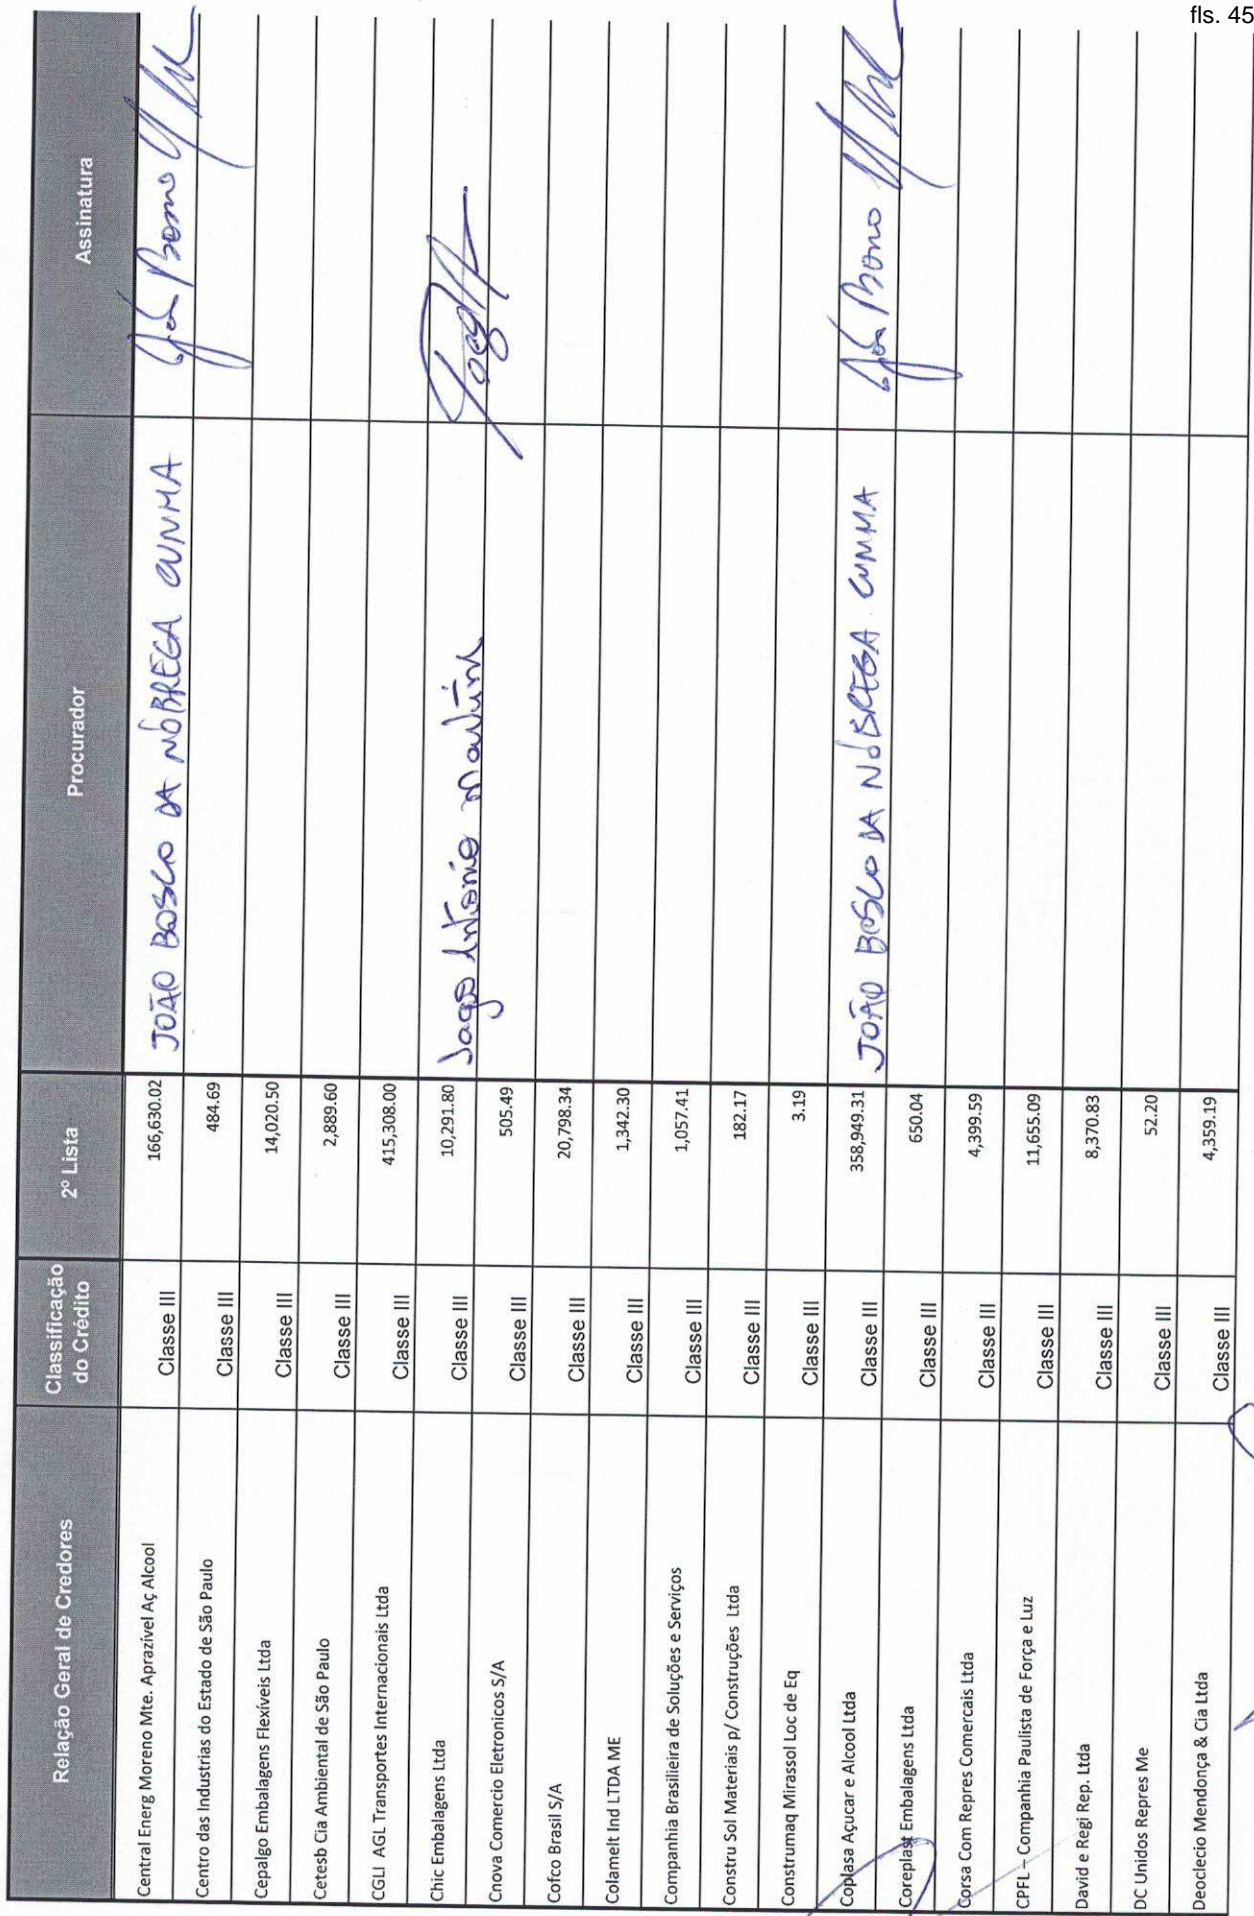 fls. 45
Relação Geral de Credores Classificação do Crédito 2º Lista Procurador Assinatura
Central Energ Moreno Mte. Aprazível Aç Alcool Classe III 166,630.02 JOÃO BOSCO DA NÓBREGA CUNHA
Centro das Industrias do Estado de São Paulo Classe III 484.69
Cepalgo Embalagens Flexíveis Ltda Classe III 14,020.50
Cetesb Cia Ambiental de São Paulo Classe III 2,889.60
CGLI AGL Transportes Internacionais Ltda Classe III 415,308.00
Chic Embalagens Ltda Classe III 10,291.80 Iago Antonio Martins
Cnova Comercio Eletronicos S/A Classe III 505.49
Cofco Brasil S/A Classe III 20,798.34
Colamelt Ind LTDA ME Classe III 1,342.30
Companhia Brasilieira de Soluções e Serviços Classe III 1,057.41
Constru Sol Materiais p/ Construções Ltda Classe III 182.17
Construmaq Mirassol Loc de Eq Classe III 3.19
Coplasa Açucar e Alcool Ltda Classe III 358,949.31 JOÃO BOSCO DA NÓBREGA CUNHA
Coreplast Embalagens Ltda Classe III 650.04
Corsa Com Repres Comercais Ltda Classe III 4,399.59
CPFL – Companhia Paulista de Força e Luz Classe III 11,655.09
David e Regi Rep. Ltda Classe III 8,370.83
DC Unidos Repres Me Classe III 52.20
Deoclecio Mendonça & Cia Ltda Classe III 4,359.19